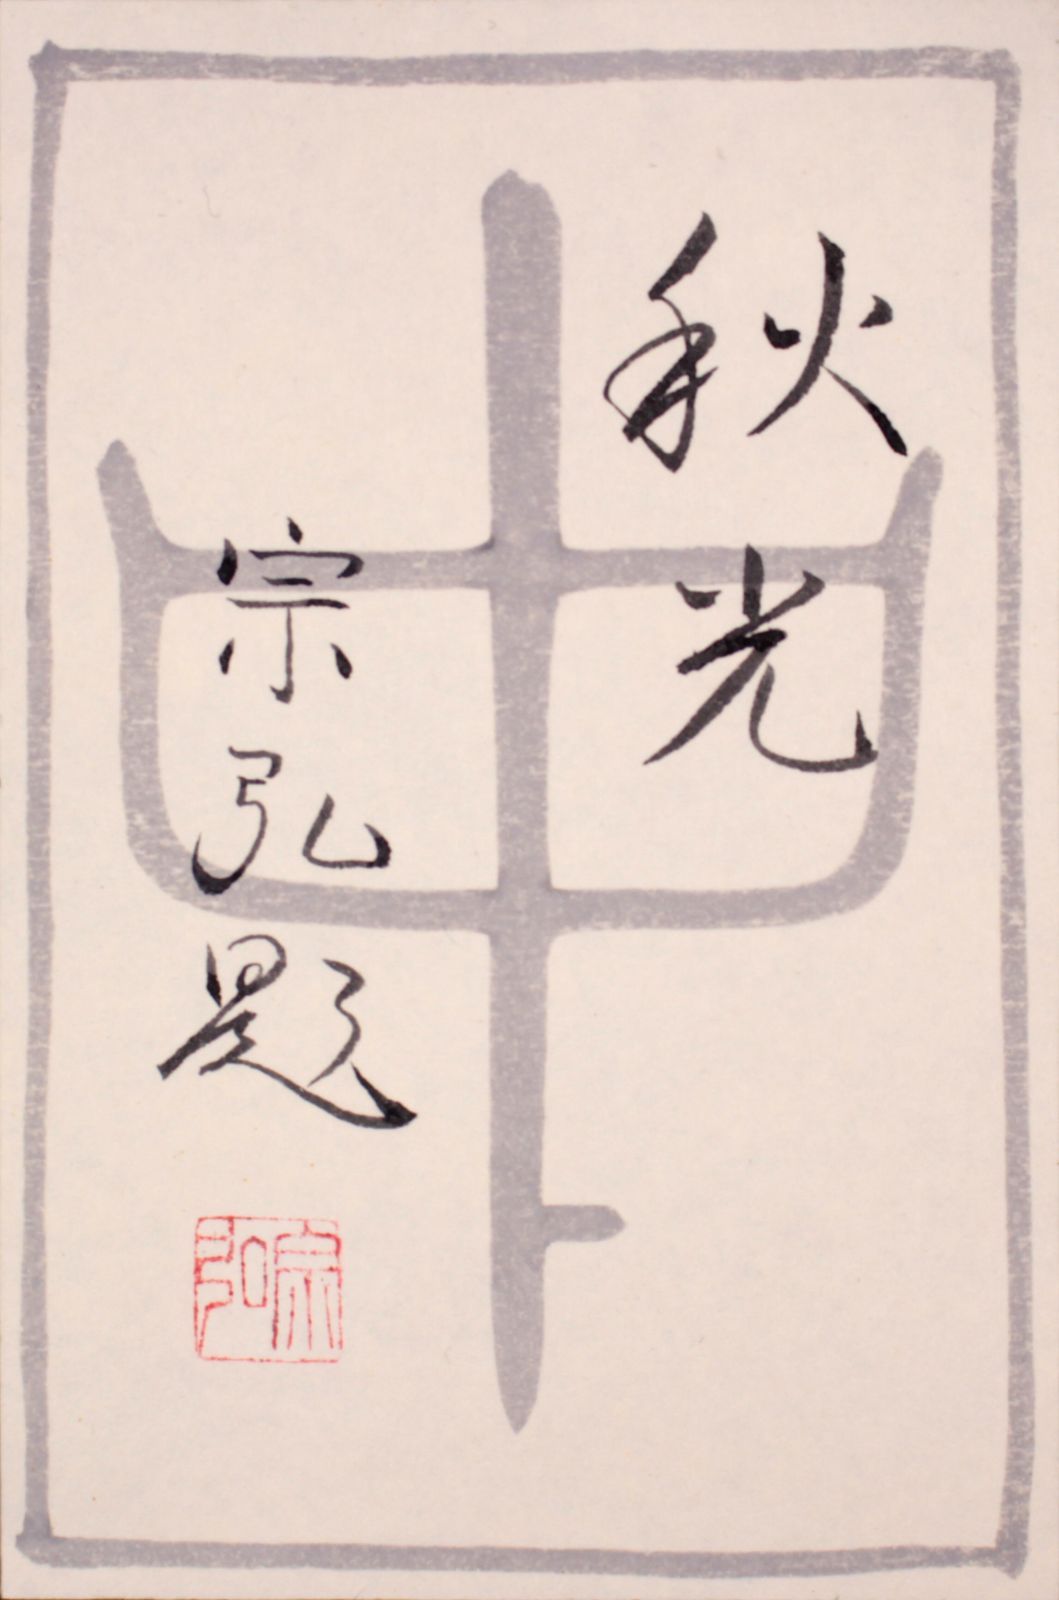 秋光
宗弘題
宗弘